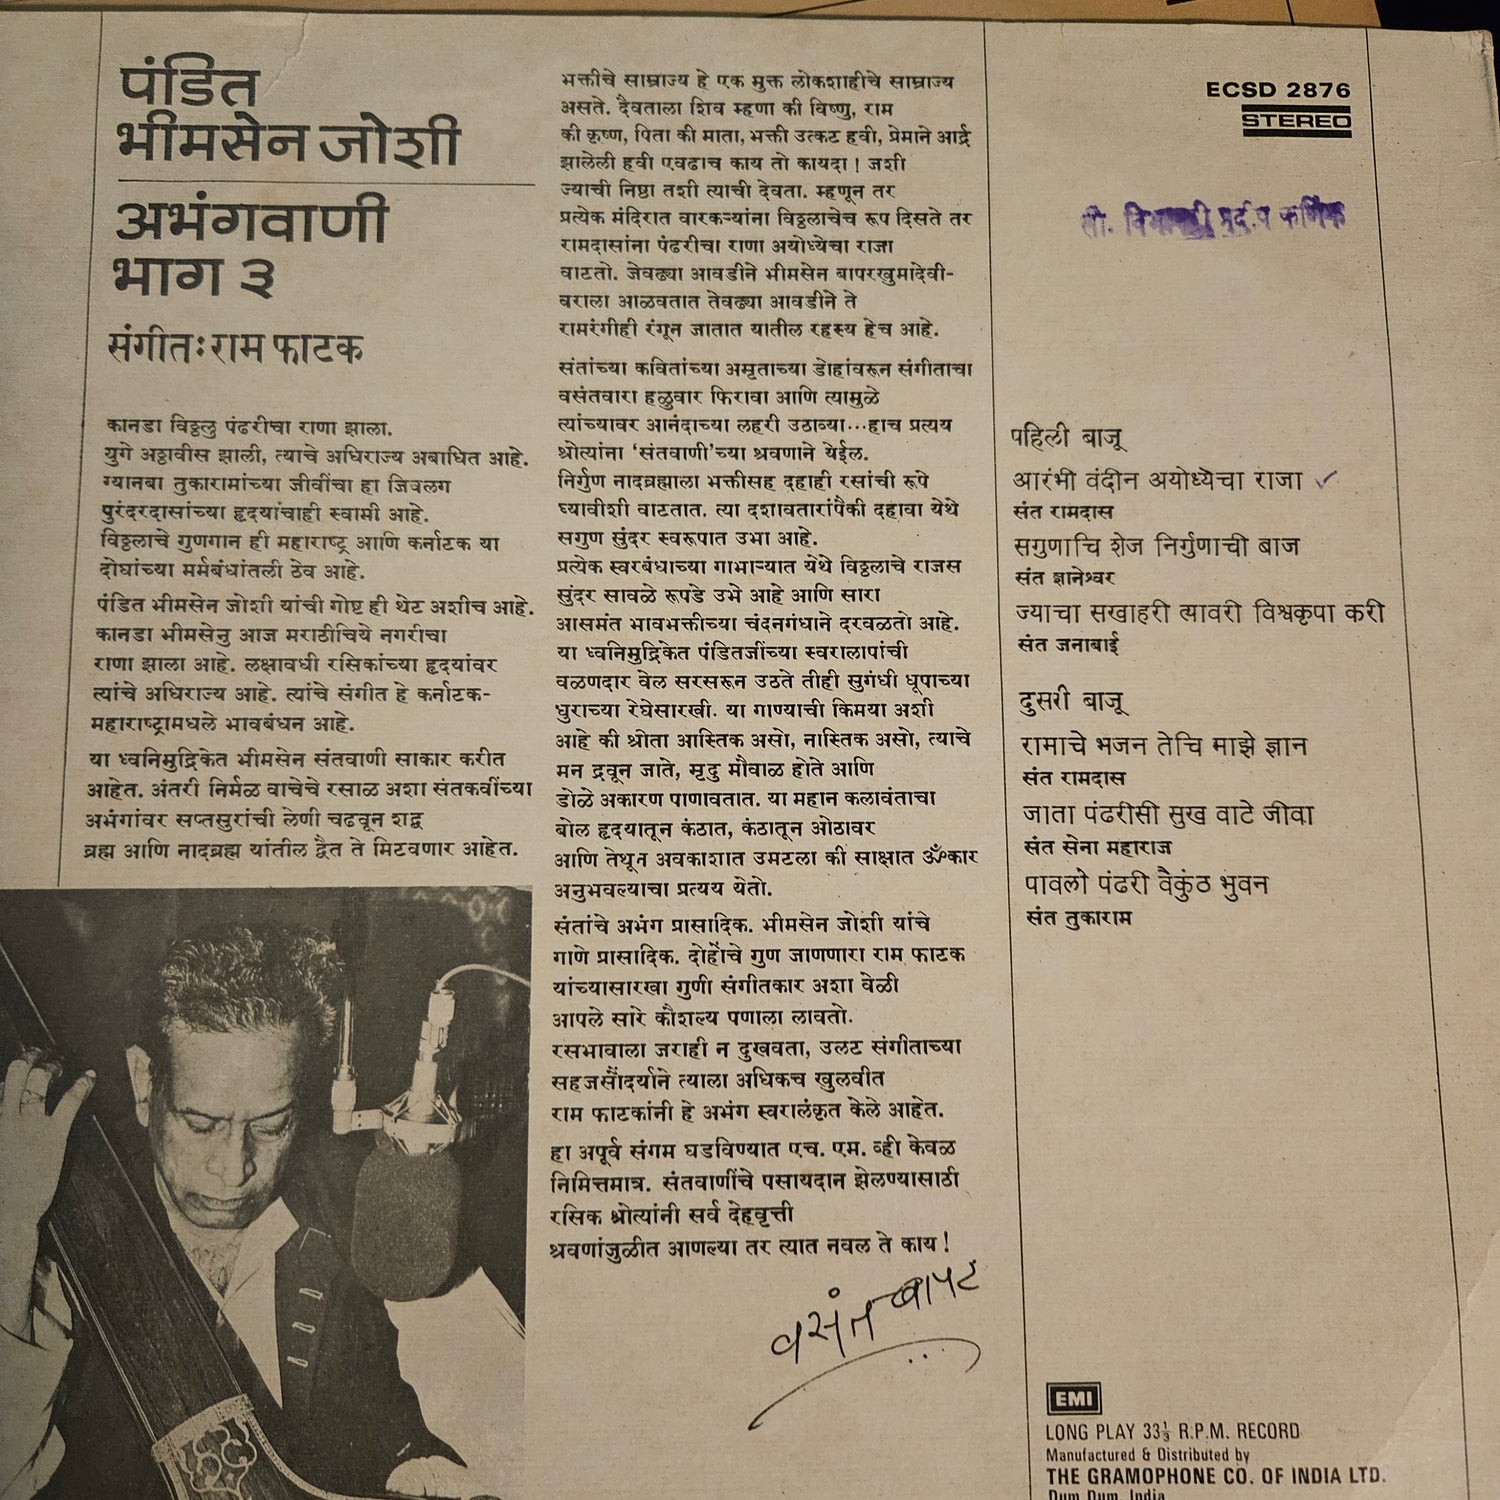 पंडित
भीमसेन जोशी
अभंगवाणी
भाग ३
संगीतः राम फाटक
कानडा विठ्ठलु पंढरीचा राणा झाला.
युगे अठ्ठावीस झाली, त्याचे अधिराज्य अबाधित आहे.
ग्यानबा तुकारामांच्या जीवींचा हा जिवलग
पुरंदरदासांच्या हृदयांचाही स्वामी आहे.
विठ्ठलाचे गुणगान ही महाराष्ट्र आणि कर्नाटक या
दोघांच्या मर्मबंधांतली ठेव आहे.
पंडित भीमसेन जोशी यांची गोष्ट ही थेट अशीच आहे.
कानडा भीमसेनु आज मराठीचिये नगरीचा
राणा झाला आहे. लक्षावधी रसिकांच्या हृदयांवर
त्यांचे अधिराज्य आहे. त्यांचे संगीत हे कर्नाटक-
महाराष्ट्रामधले भावबंधन आहे.
या ध्वनिमुद्रिकेत भीमसेन संतवाणी साकार करीत
आहेत. अंतरी निर्मळ वाचेचे रसाळ अशा संतकवींच्या
अभंगांवर सप्तसुरांची लेणी चढवून शद्ब
ब्रह्म आणि नादब्रह्म यांतील द्वैत ते मिटवणार आहेत.
भक्तीचे साम्राज्य हे एक मुक्त लोकशाहीचे साम्राज्य
असते. दैवताला शिव म्हणा की विष्णु, राम
की कृष्ण, पिता की माता, भक्ती उत्कट हवी, प्रेमाने आर्द्र
झालेली हवी एवढाच काय तो कायदा! जशी
ज्याची निष्ठा तशी त्याची देवता. म्हणून तर
प्रत्येक मंदिरात वारकऱ्यांना विठ्ठलाचेच रूप दिसते तर
रामदासांना पंढरीचा राणा अयोध्येचा राजा
वाटतो. जेवढ्या आवडीने भीमसेन बापरखुमादेवी-
वराला आळवतात तेवढ्या आवडीने ते
रामरंगीही रंगून जातात यातील रहस्य हेच आहे.
संतांच्या कवितांच्या अमृताच्या डोहांवरून संगीताचा
वसंतवारा हळुवार फिरावा आणि त्यामुळे
त्यांच्यावर आनंदाच्या लहरी उठाव्या...हाच प्रत्यय
श्रोत्यांना 'संतवाणी'च्या श्रवणाने येईल.
निर्गुण नादब्रह्माला भक्तीसह दहाही रसांची रूपे
घ्यावीशी वाटतात. त्या दशावतारांपैकी दहावा येथे
सगुण सुंदर स्वरूपात उभा आहे.
प्रत्येक स्वरबंधाच्या गाभाऱ्यात येथे विठ्ठलाचे राजस
सुंदर सावळे रूपडे उभे आहे आणि सारा
आसमंत भावभक्तीच्या चंदनगंधाने दरवळतो आहे.
या ध्वनिमुद्रिकेत पंडितजींच्या स्वरालापांची
वळणदार वेल सरसरून उठते तीही सुगंधी धूपाच्या
धुराच्या रेघेसारखी. या गाण्याची किमया अशी
आहे की श्रोता आस्तिक असो, नास्तिक असो, त्याचे
मन द्रवून जाते, मृदु मौवाळ होते आणि
डोळे अकारण पाणावतात. या महान कलावंताचा
बोल हृदयातून कंठात, कंठातून ओठावर
आणि तेथून अवकाशात उमटला की साक्षात ॐकार
अनुभवल्याचा प्रत्यय येतो.
संतांचे अभंग प्रासादिक. भीमसेन जोशी यांचे
गाणे प्रासादिक. दोहोंचे गुण जाणणारा राम फाटक
यांच्यासारखा गुणी संगीतकार अशा वेळी
आपले सारे कौशल्य पणाला लावतो.
रसभावाला जराही न दुखवता, उलट संगीताच्या
सहजसौंदर्याने त्याला अधिकच खुलवीत
राम फाटकांनी हे अभंग स्वरालंकृत केले आहेत.
हा अपूर्व संगम घडविण्यात एच. एम. व्ही केवळ
निमित्तमात्र. संतवाणींचे पसायदान झेलण्यासाठी
रसिक श्रोत्यांनी सर्व देहवृत्ती
श्रवणांजुळीत आणल्या तर त्यात नवल ते काय!
वसंत बापट
ECSD 2876
STEREO
सौ. प्रदीप कर्णिक
पहिली बाजू
आरंभी वंदीन अयोध्येचा राजा ✓
संत रामदास
सगुणाचि शेज निर्गुणाची बाज
संत ज्ञानेश्वर
ज्याचा सखाहरी त्यावरी विश्वकृपा करी
संत जनाबाई
दुसरी बाजू
रामाचे भजन तेचि माझे ज्ञान
संत रामदास
जाता पंढरीसी सुख वाटे जीवा
संत सेना महाराज
पावलो पंढरी वैकुंठ भुवन
संत तुकाराम
EMI
LONG PLAY 33⅓ R.P.M. RECORD
Manufactured & Distributed by
THE GRAMOPHONE CO. OF INDIA LTD.
Dum Dum, India